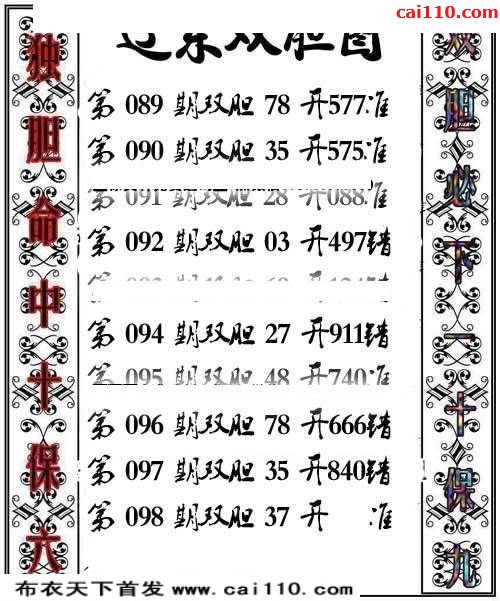 cai110.com
双胆图
独胆命中十保六
第 089 期双胆 78 开577准
第 090 期双胆 35 开575准
第 091 期双胆 28 开088准
第 092 期双胆 03 开497错
第 094 期双胆 27 开911错
第 095 期双胆 48 开740准
第 096 期双胆 78 开666错
第 097 期双胆 35 开840错
第 098 期双胆 37 开 准
双胆必下一十保九
布衣天下首发 www.cai110.com